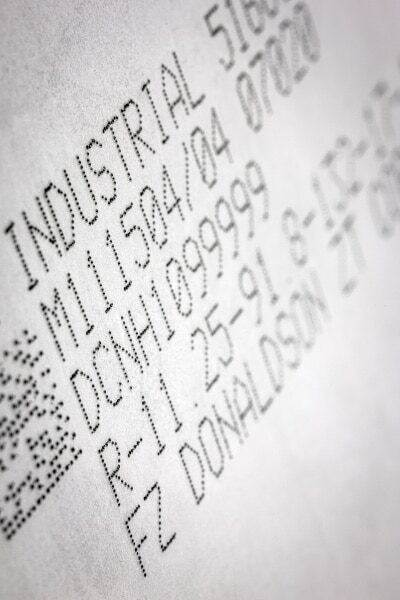 INDUSTRIAL
M111504/04 07020
DCNH1099999
R-11.25-91.8-132-17
FZ DONALDSON ZT